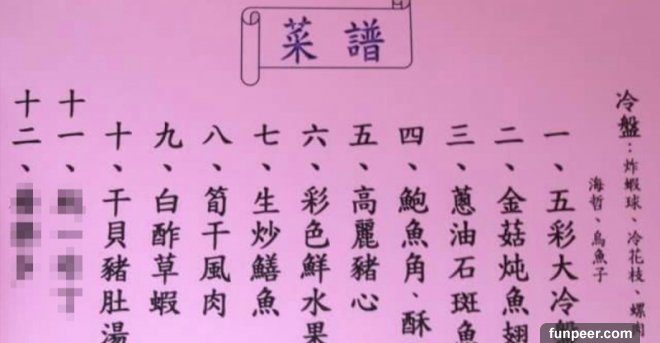 菜譜
冷盤：炸蝦球、冷花枝、螺肉
海哲、烏魚子
一、五彩大冷
二、金菇炖魚翅
三、蔥油石斑魚
四、鮑魚角、酥
五、高麗豬心
六、彩色鮮水果
七、生炒鱔魚
八、筍干風肉
九、白酢草蝦
十、干貝豬肚湯
十一、
十二、
funpeer.com